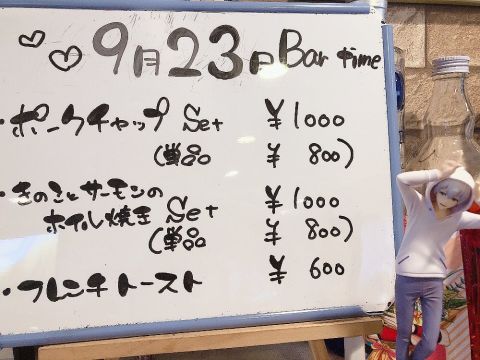 9月23日 Bar time
・ポークチャップ Set ¥1000
(単品 ¥800)
・きのことサーモンの
ホイル焼き Set ¥1000
(単品 ¥800)
・フレンチトースト ¥600